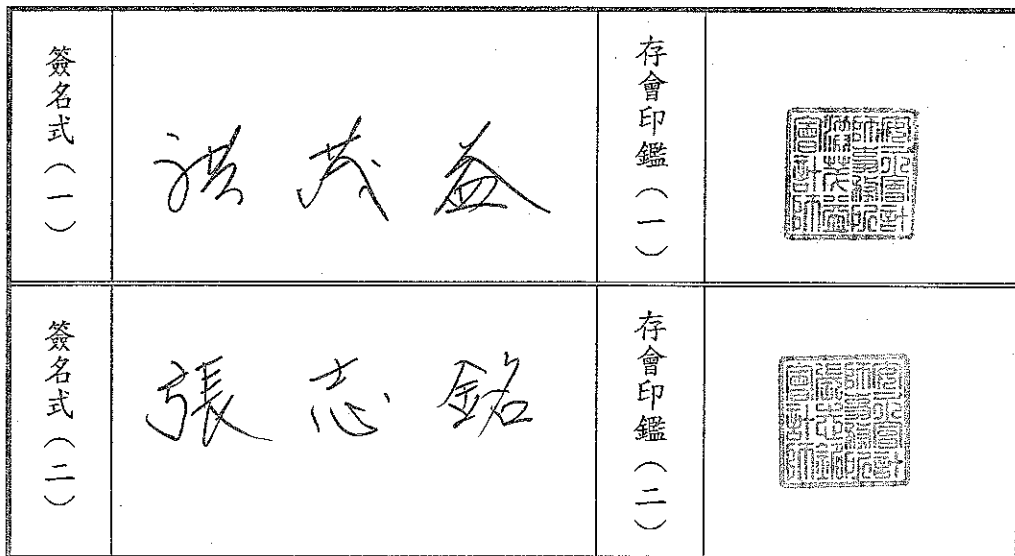 簽名式(一)
洪茂益
存會印鑑(一)
簽名式(二)
張志銘
存會印鑑(二)